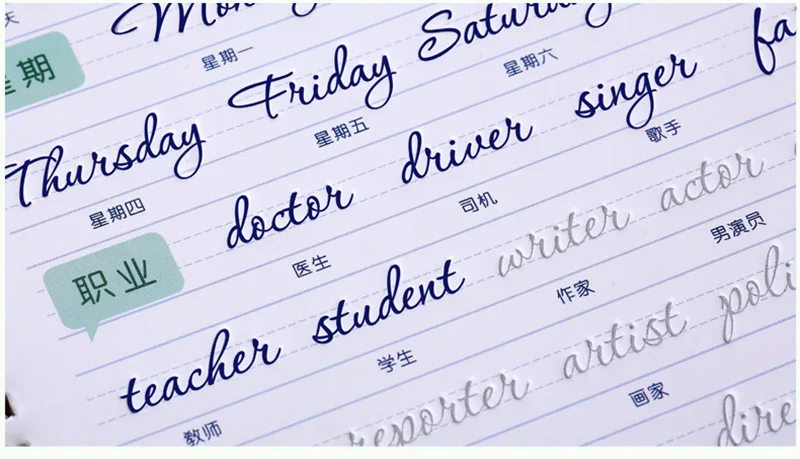 天
Mon
星期一
期
Thursday Friday Satur
星期四 星期五 星期六
职业
doctor driver singer fa
医生 司机 歌手
teacher student writer actor
教师 学生 作家 男演员
reporter artist poli
画家
dire